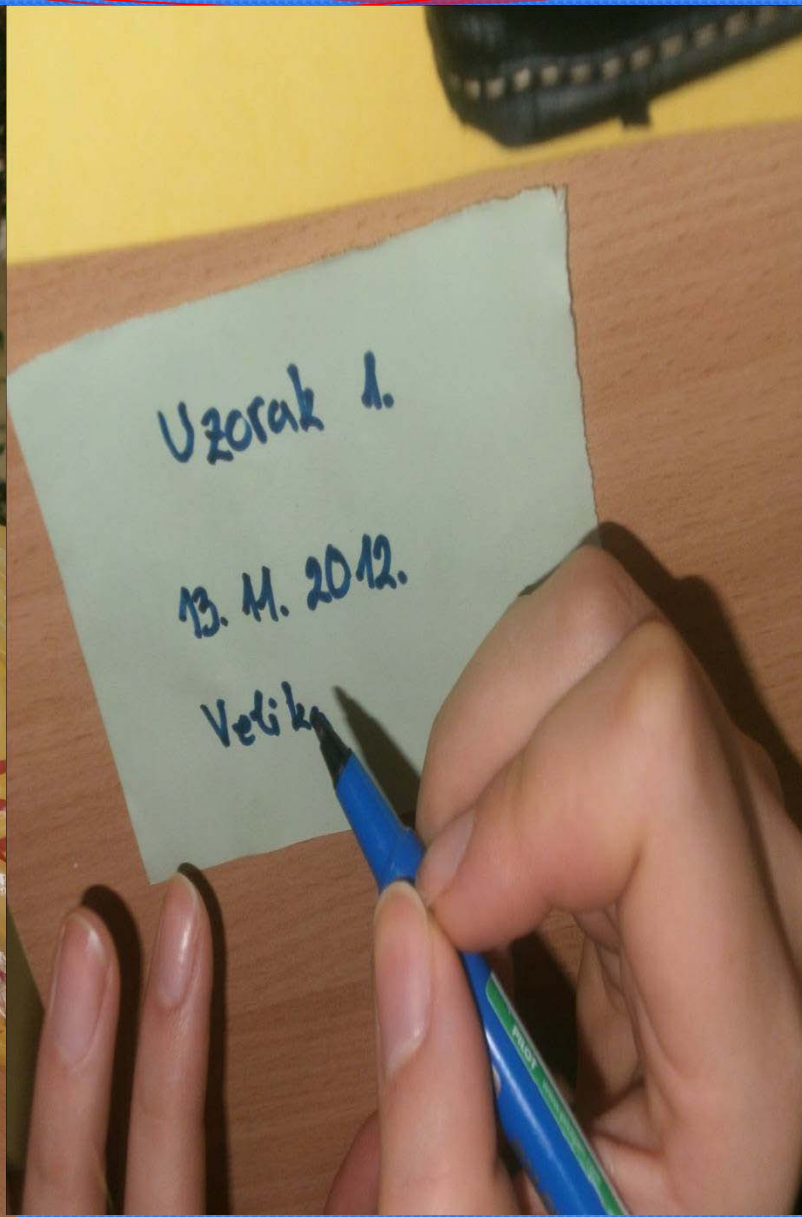 Uzorak 1.
13. 11. 2012.
Velika
PILOT